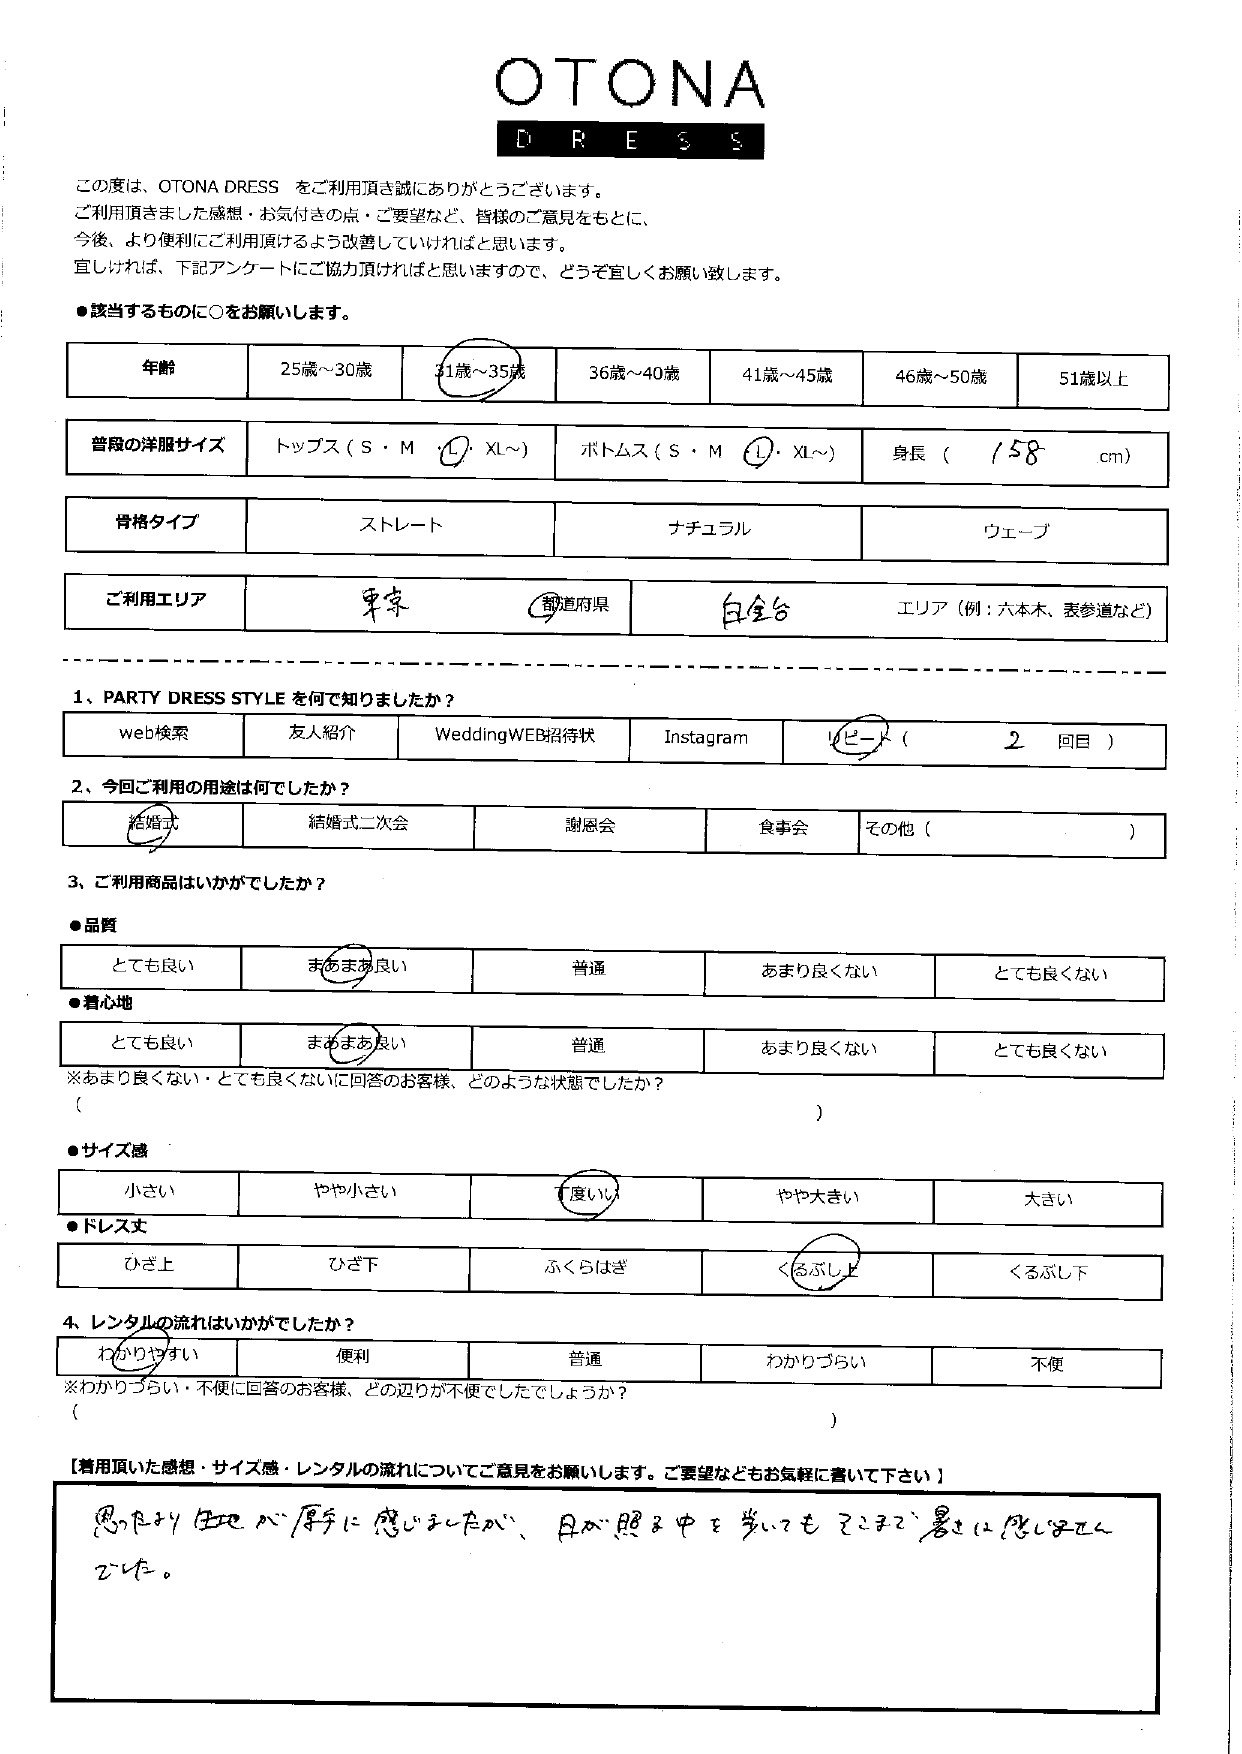 OTONA
DRESS
この度は、OTONA DRESS をご利用頂き誠にありがとうございます。
ご利用頂きました感想・お気付きの点・ご要望など、皆様のご意見をもとに、
今後、より便利にご利用頂けるよう改善していければと思います。
宜しければ、下記アンケートにご協力頂ければと思いますので、どうぞ宜しくお願い致します。
●該当するものに○をお願いします。
年齢 25歳～30歳 31歳～35歳 36歳～40歳 41歳～45歳 46歳～50歳 51歳以上
普段の洋服サイズ トップス ( S ・ M ・ L ・ XL～) ボトムス ( S ・ M ・ L ・ XL～) 身長 ( 158 cm)
骨格タイプ ストレート ナチュラル ウェーブ
ご利用エリア 東京 都道府県 白金台 エリア（例：六本木、表参道など）
1、PARTY DRESS STYLE を何で知りましたか？
web検索 友人紹介 WeddingWEB招待状 Instagram リピート ( 2 回目 )
2、今回ご利用の用途は何でしたか？
結婚式 結婚式二次会 謝恩会 食事会 その他 ( )
3、ご利用商品はいかがでしたか？
●品質
とても良い まあまあ良い 普通 あまり良くない とても良くない
●着心地
とても良い まあまあ良い 普通 あまり良くない とても良くない
※あまり良くない・とても良くないに回答のお客様、どのような状態でしたか？
( )
●サイズ感
小さい やや小さい 丁度いい やや大きい 大きい
●ドレス丈
ひざ上 ひざ下 ふくらはぎ くるぶし上 くるぶし下
4、レンタルの流れはいかがでしたか？
わかりやすい 便利 普通 わかりづらい 不便
※わかりづらい・不便に回答のお客様、どの辺りが不便でしたでしょうか？
( )
【着用頂いた感想・サイズ感・レンタルの流れについてご意見をお願いします。ご要望などもお気軽に書いて下さい】
思ったより生地が厚手に感じましたが、日が照る中を歩いてもそこまで暑さは感じません
でした。